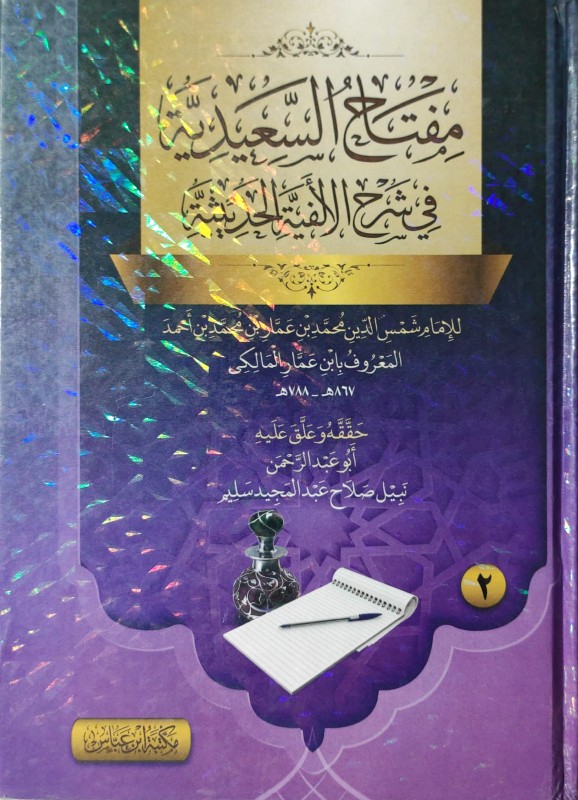 مِفْتَاحُ السَّعِيدِيَّة
فِي شَرْحِ الأَلْفِيَّةِ الحَدِيثِيَّةِ
لِلإِمَامِ شَمْسِ الدِّينِ مُحَمَّدِ بْنِ عَمَّارِ بْنِ مُحَمَّدِ بْنِ أَحْمَدَ
المَعْرُوفِ بِابْنِ عَمَّارٍ المَالِكِي
٨٦٧هـ - ٧٨٨هـ
حَقَّقَهُ وَعَلَّقَ عَلَيهِ
أَبُو عَبْدِ الرَّحْمَن
نَبِيْل صَلَاح عَبْد المَجِيد سَلِيم
٢
مكتبة ابن عباس